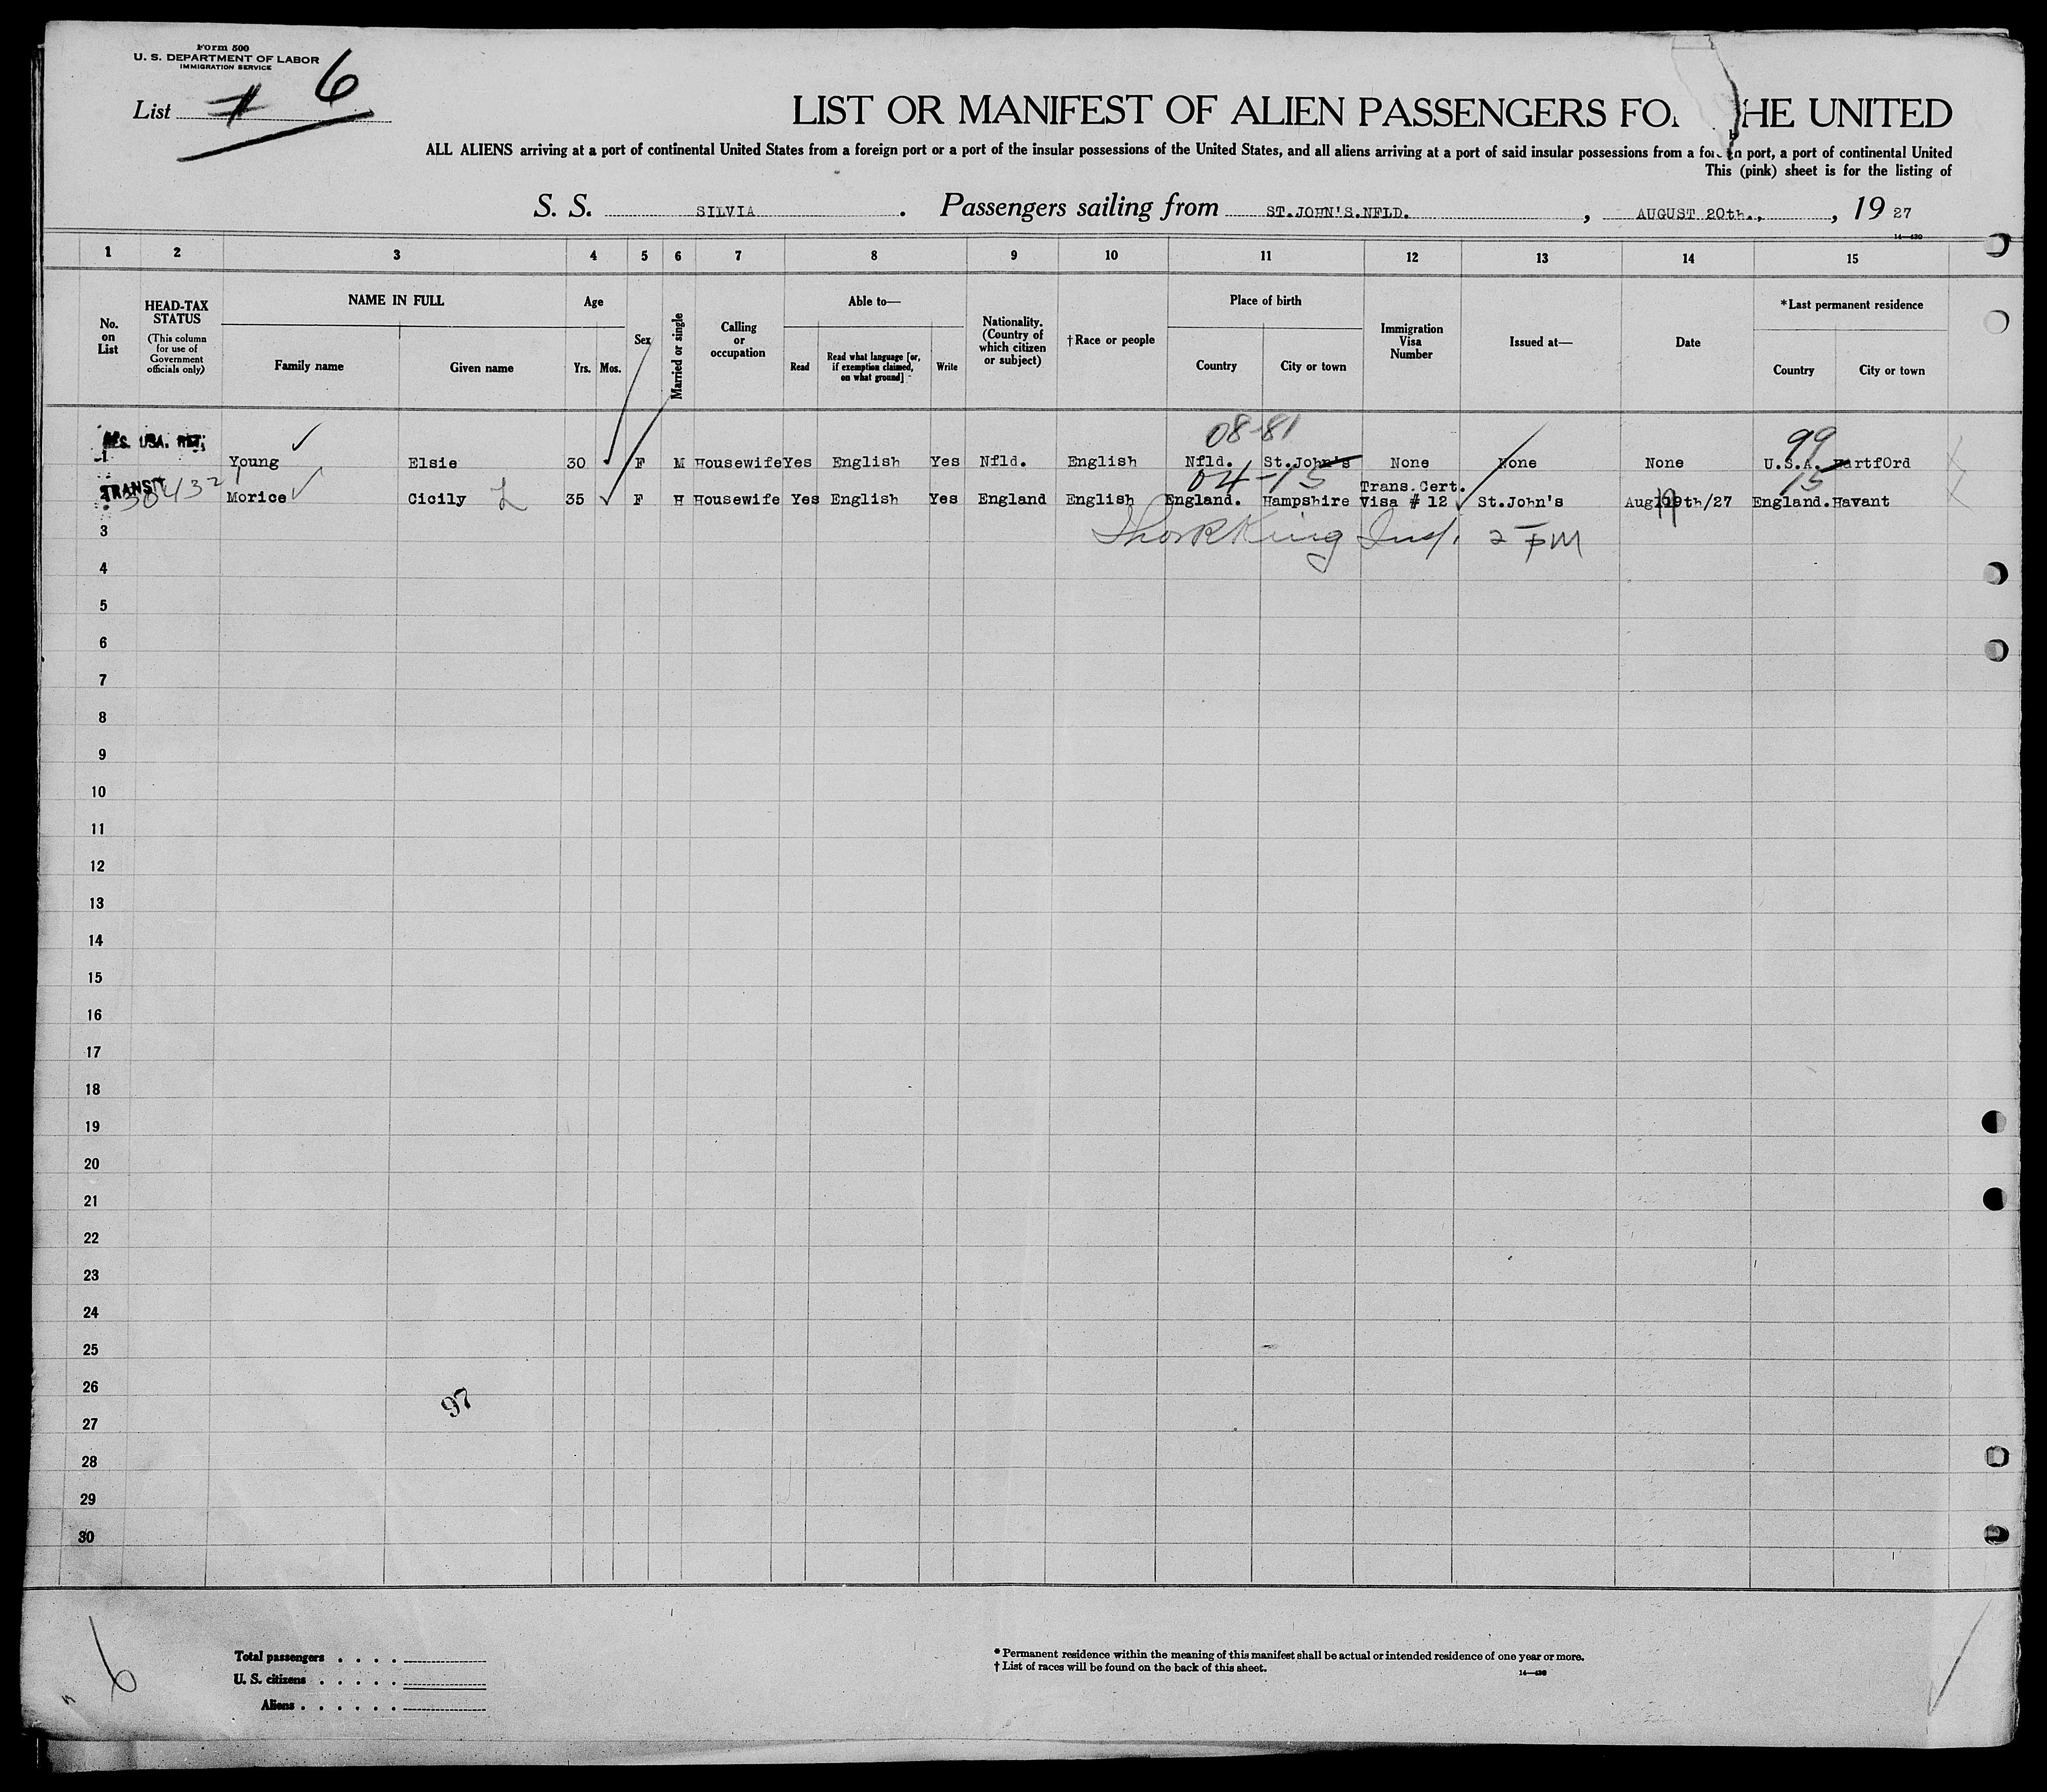 Form 500
U. S. DEPARTMENT OF LABOR
IMMIGRATION SERVICE
List 6
LIST OR MANIFEST OF ALIEN PASSENGERS FO HE UNITED
ALL ALIENS arriving at a port of continental United States from a foreign port or a port of the insular possessions of the United States, and all aliens arriving at a port of said insular possessions from a n port, a port of continental United
This (pink) sheet is for the listing of
S. S. SILVIA. Passengers sailing from ST.JOHN'S.NFLD. , AUGUST 20th., , 19 27
14—430
1 2 3 4 5 6 7 8 9 10 11 12 13 14 15
No. on List
HEAD-TAX STATUS
(This column for use of Government officials only)
NAME IN FULL
Family name Given name
Age
Yrs. Mos.
Sex
Married or single
Calling or occupation
Able to—
Read Read what language [or, if exemption claimed, on what ground] Write
Nationality. (Country of which citizen or subject)
†Race or people
Place of birth
Country City or town
Immigration Visa Number
Issued at—
Date
*Last permanent residence
Country City or town
08-81 99
USA.
1 Young Elsie 30 F M Housewife Yes English Yes Nfld. English Nfld. St.John's None None None U.S.A. HartfOrd
04-15 15
TRANSIT
Trans.Cert.
Morice Cicily 35 F M Housewife Yes English Yes England English England. Hampshire Visa # 12 St.John's Aug 19th/27 England. Havant
3 King 2 PM
4
5
6
7
8
9
10
11
12
13
14
15
16
17
18
19
20
21
22
23
24
25
26
97
27
28
29
30
6
Total passengers . . . .
U. S. citizens . . . . .
Aliens . . . . . .
* Permanent residence within the meaning of this manifest shall be actual or intended residence of one year or more.
† List of races will be found on the back of this sheet.
14—430